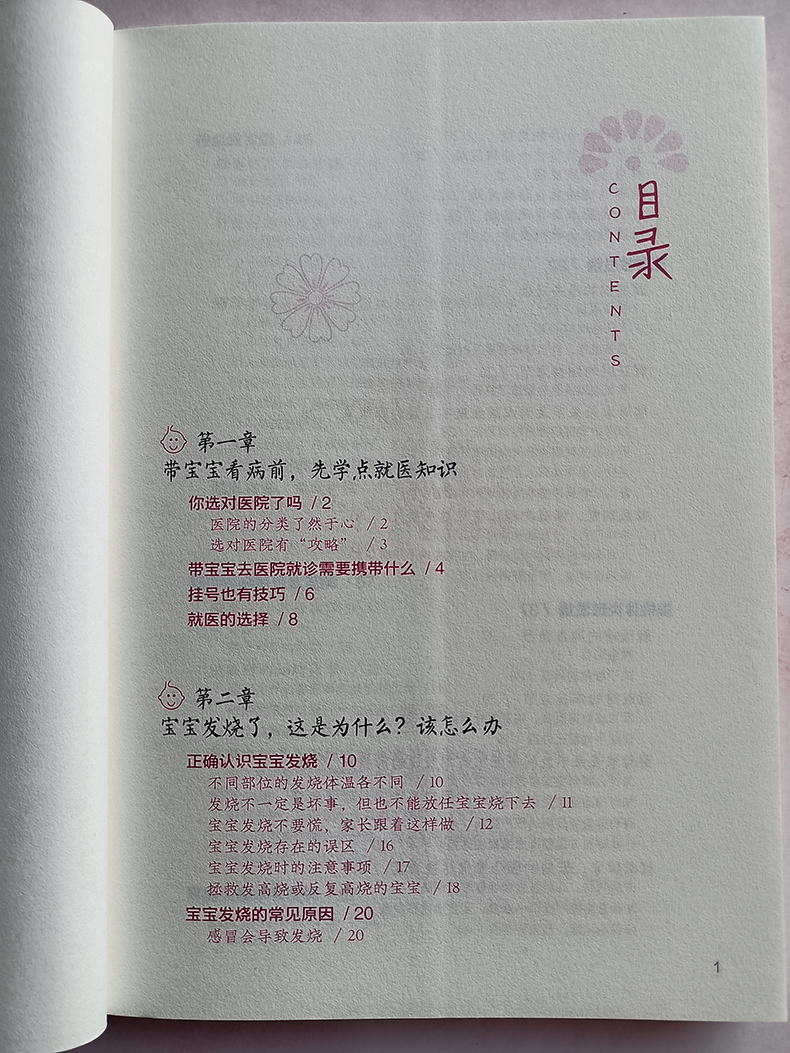 目录
CONTENTS
第一章
带宝宝看病前，先学点就医知识
你选对医院了吗 / 2
医院的分类了然于心 / 2
选对医院有“攻略” / 3
带宝宝去医院就诊需要携带什么 / 4
挂号也有技巧 / 6
就医的选择 / 8
第二章
宝宝发烧了，这是为什么？该怎么办
正确认识宝宝发烧 / 10
不同部位的发烧体温各不同 / 10
发烧不一定是坏事，但也不能放任宝宝烧下去 / 11
宝宝发烧不要慌，家长跟着这样做 / 12
宝宝发烧存在的误区 / 16
宝宝发烧时的注意事项 / 17
拯救发高烧或反复高烧的宝宝 / 18
宝宝发烧的常见原因 / 20
感冒会导致发烧 / 20
1